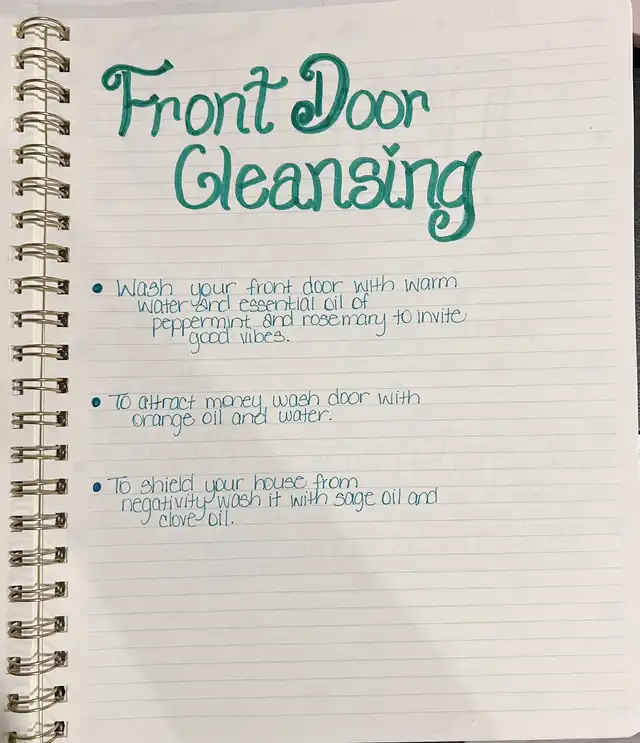 Front Door
Cleansing
• Wash your front door with warm
water and essential oil of
peppermint and rosemary to invite
good vibes.
• To attract money, wash door with
orange oil and water.
• To shield your house from
negativity, wash it with sage oil and
clove oil.